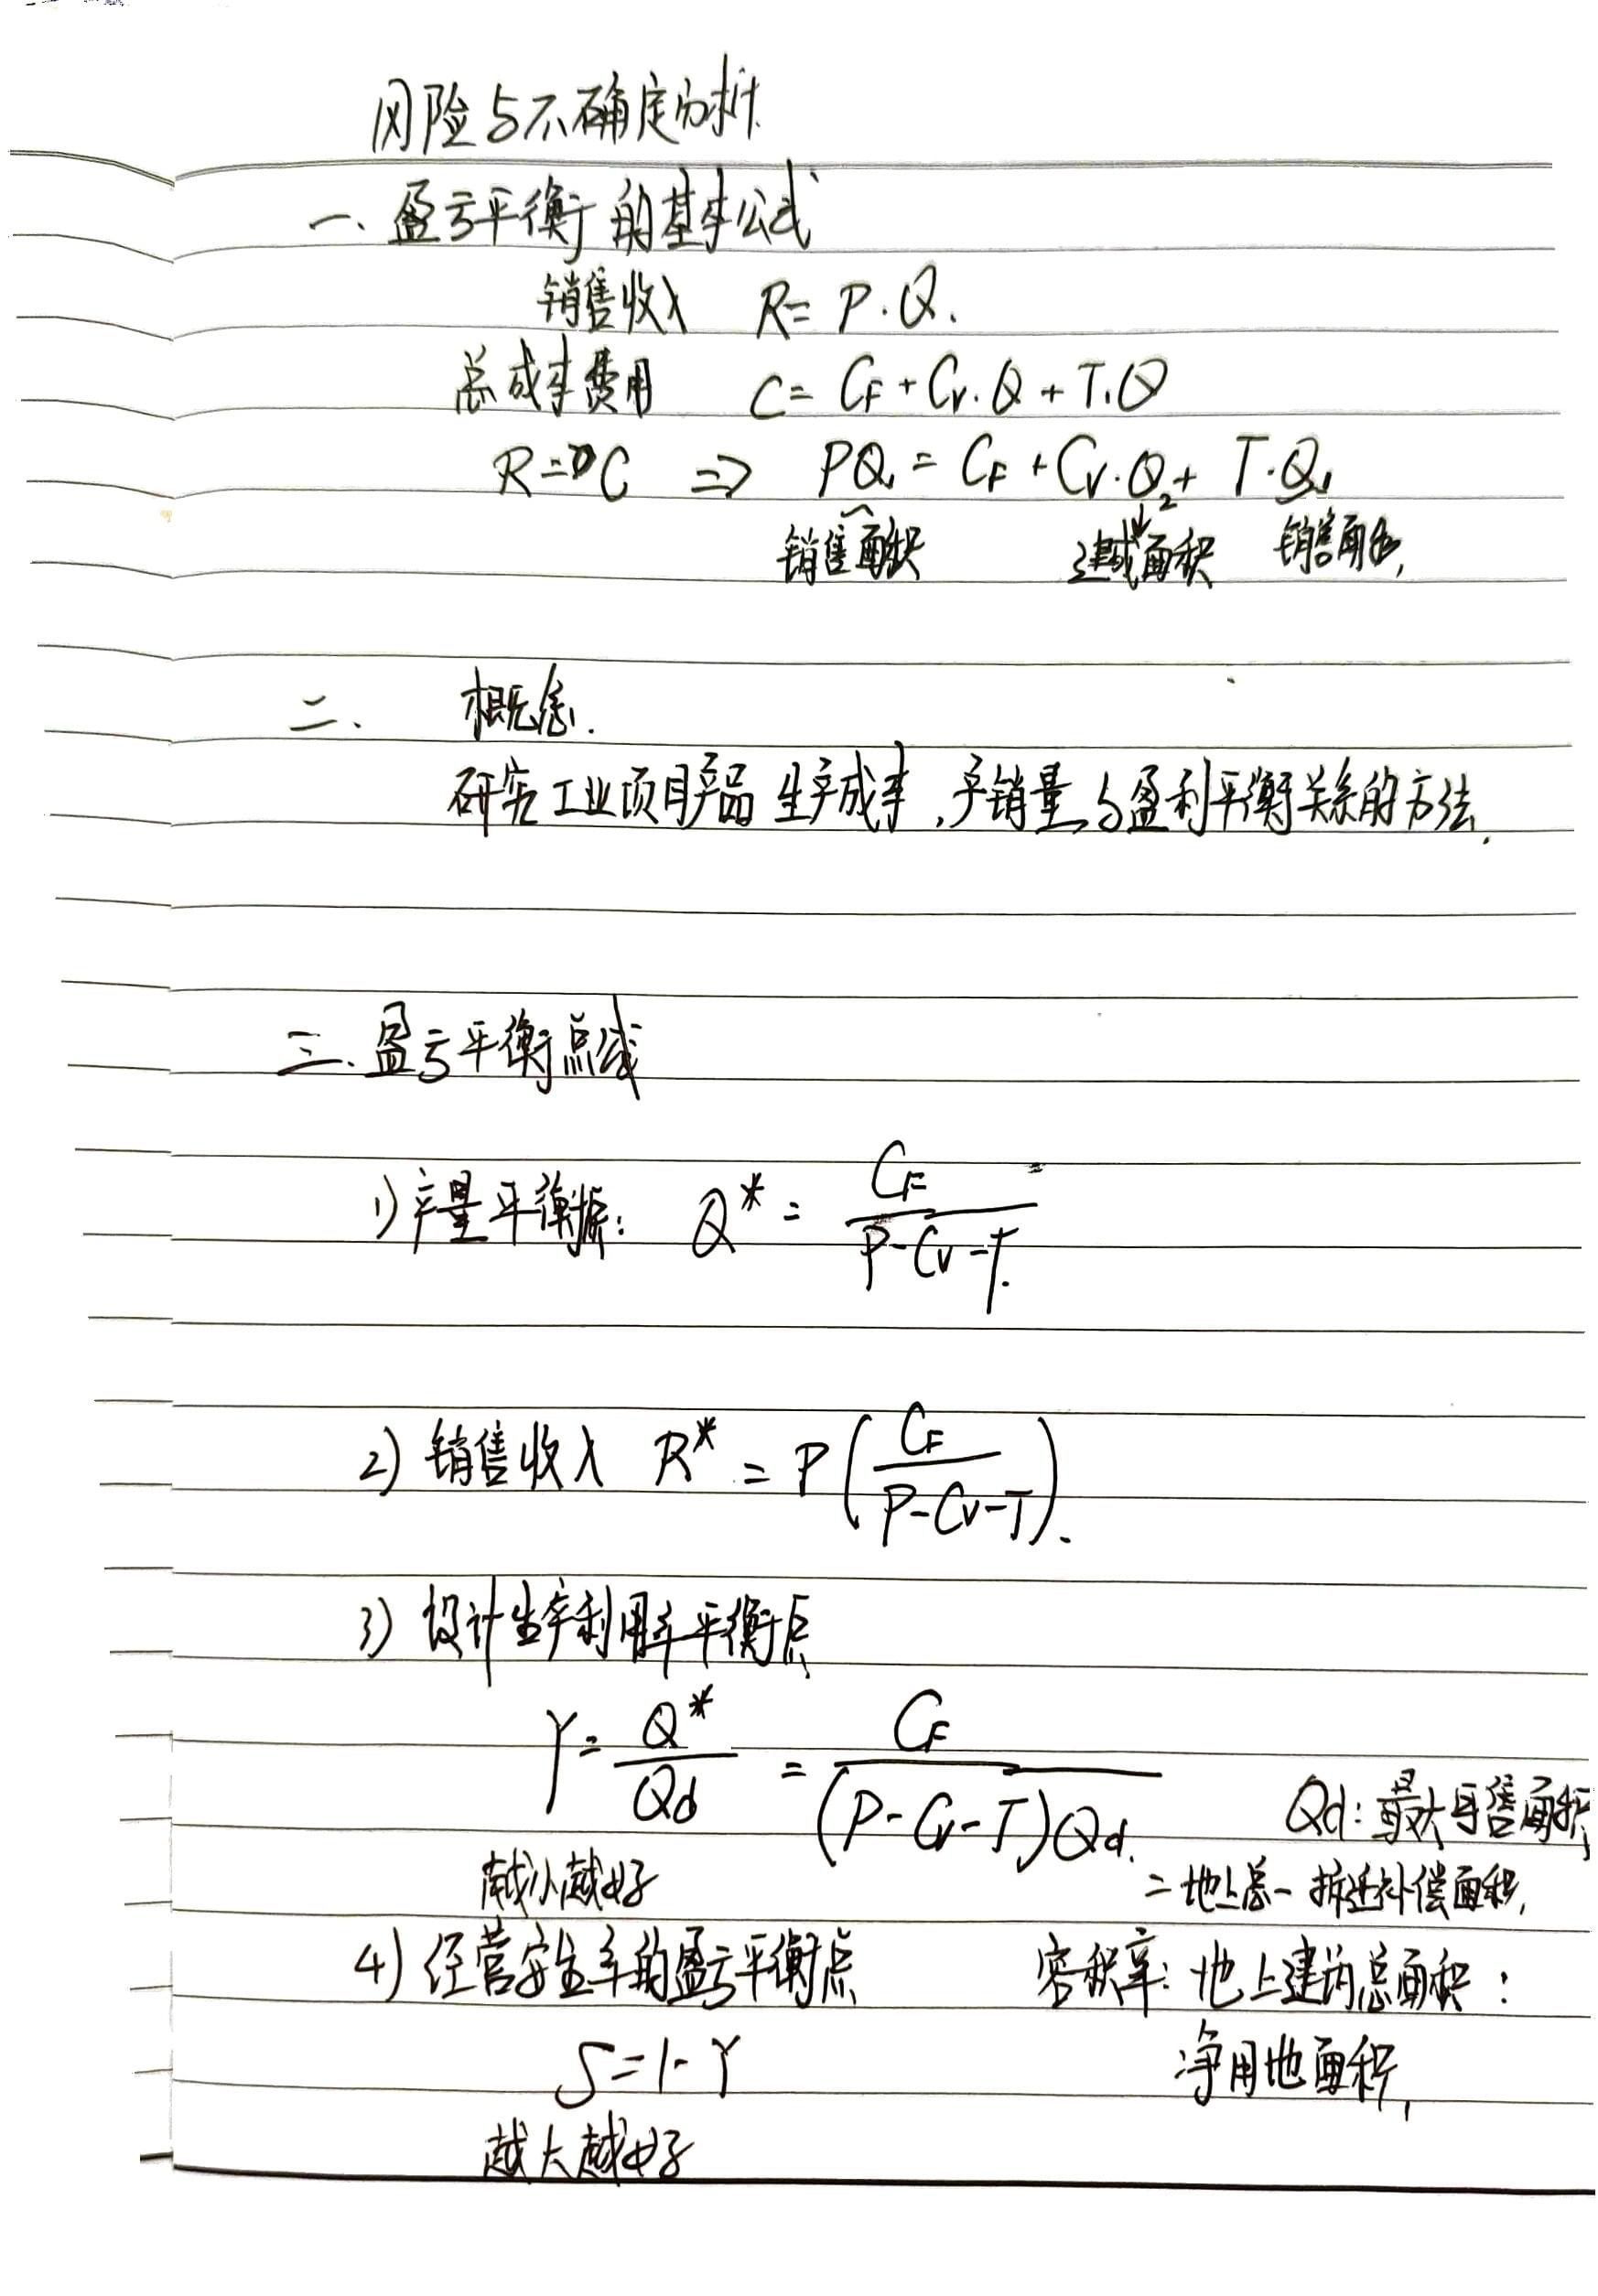 风险与不确定分析
一、盈亏平衡的基本公式
销售收入 R = P·Q.
总成本费用 C = C_F + C_V·Q + T·Q
R = C ⇒ PQ₁ = C_F + C_V·Q₂ + T·Q₁
销售面积 建成面积 销售面积,
二、 概念.
研究工业项目产品生产成本,产销量与盈利平衡关系的方法.
三、盈亏平衡点
1) 产量平衡点: Q* = C_F / (P - C_V - T)
2) 销售收入 R* = P(C_F / (P - C_V - T)).
3) 设计生产利用率平衡点
γ = Q* / Qd = C_F / ((P - C_V - T)Qd)
Qd: 最大可售面积
越小越好 = 地上总 - 拆迁补偿面积,
4) 经营安全率的盈亏平衡点 容积率: 地上建筑总面积:
S = 1 - γ 净用地面积,
越大越好